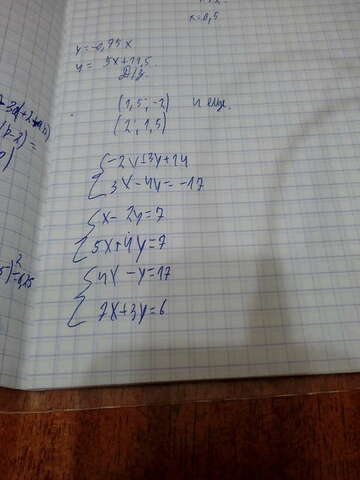 к=0,5
y=-0,75x
y= 5x+11,5
Д/з.
(1,5;-2) и еще.
(2; 1,5)
{-2x±3y+14
3x-4y=-17
{x-2y=7
5x+4y=7
{4x-y=17
7x+3y=6